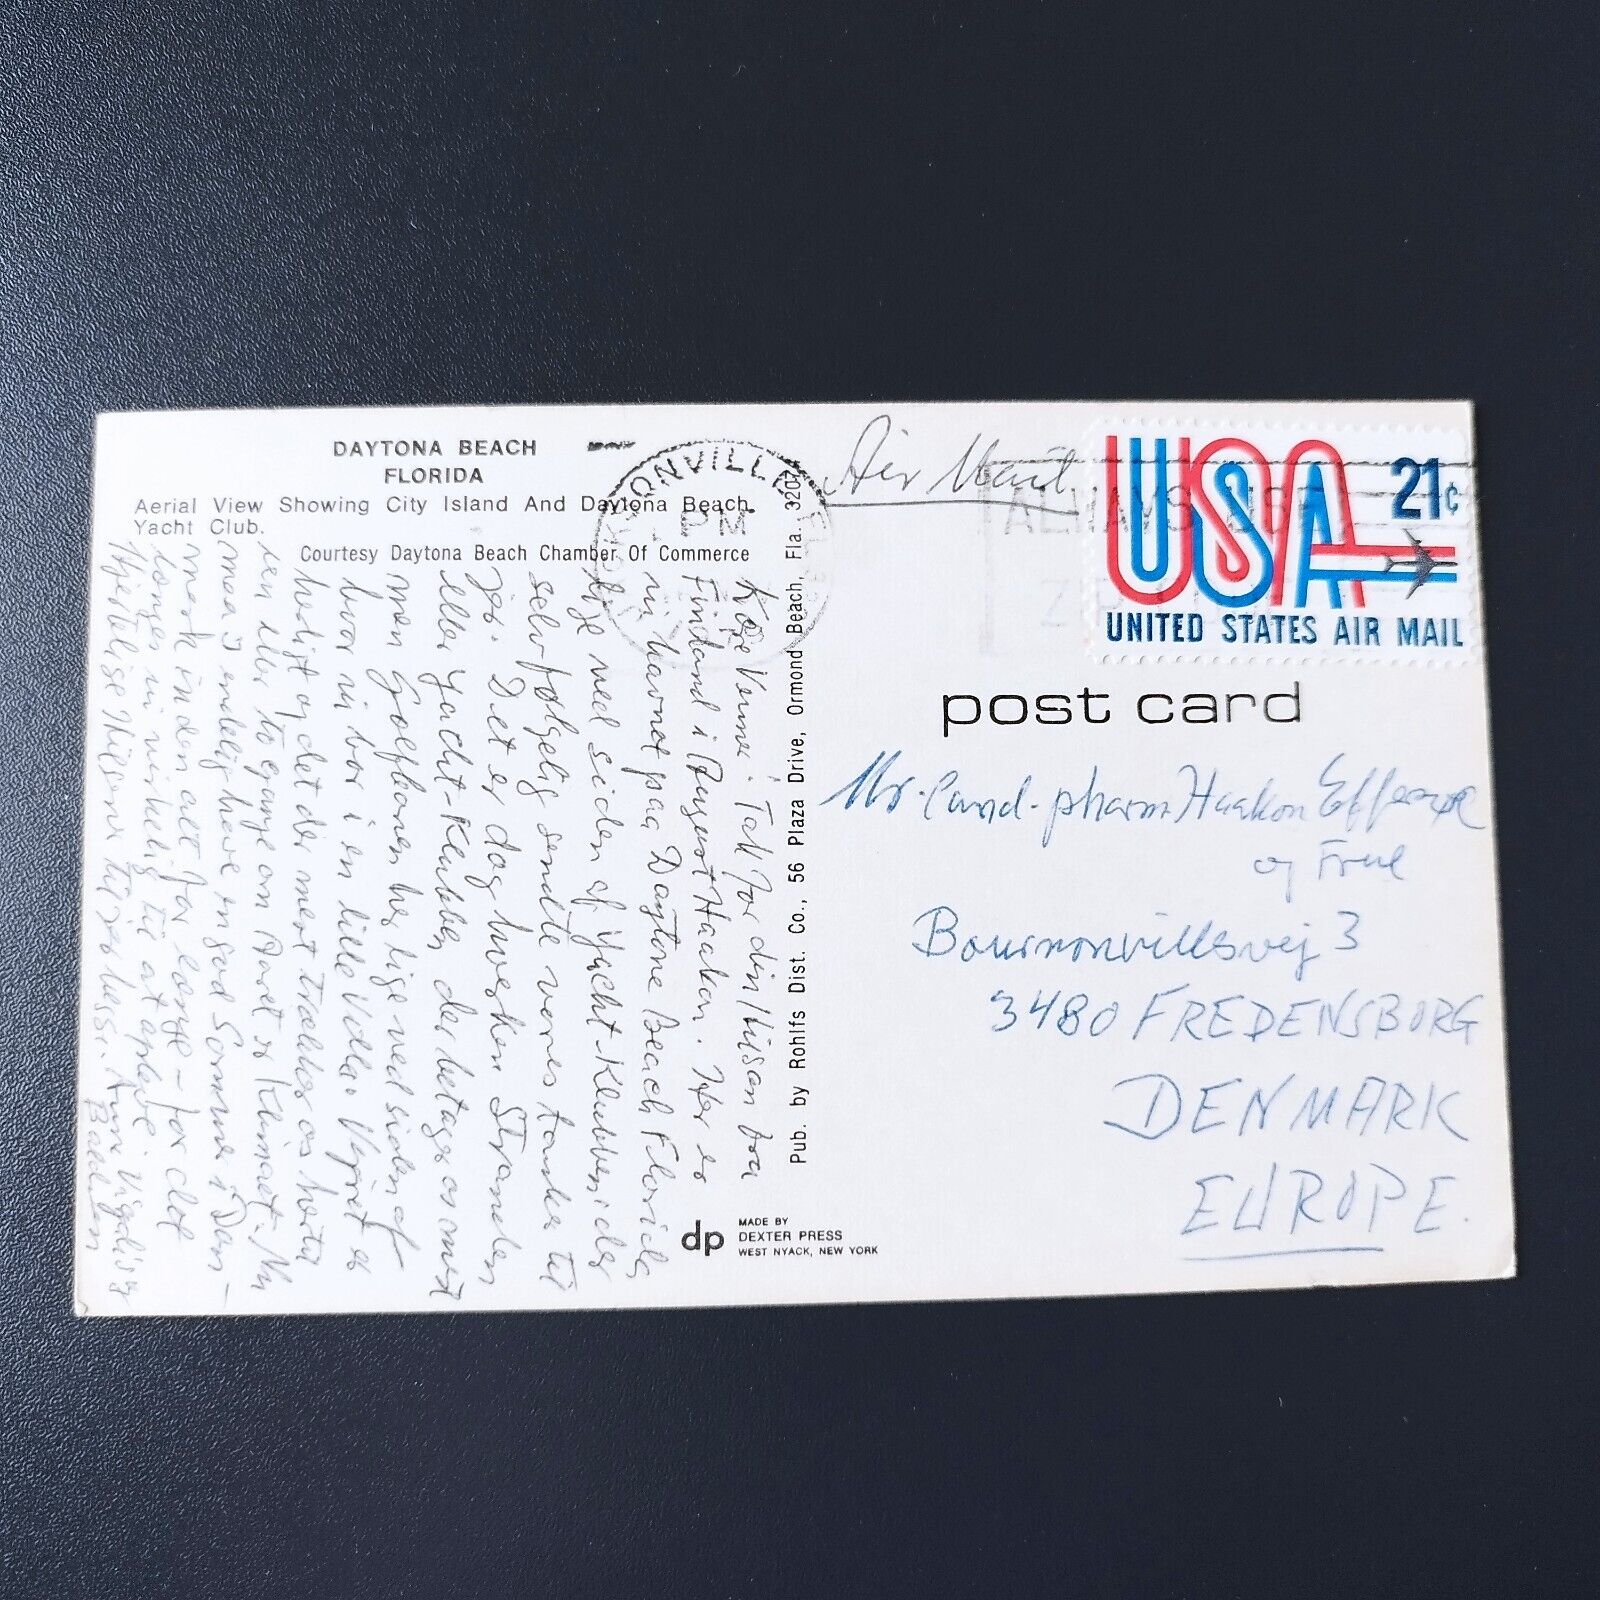 DAYTONA BEACH
FLORIDA
Aerial View Showing City Island And Daytona Beach
Yacht Club.
Courtesy Daytona Beach Chamber Of Commerce
Kære Venner. Tak for din Hilsen fra
Finland i August Haakon. Her er
vi havnet paa Daytona Beach Florida
lige ved siden af Yacht-Klubben der
selvfølgelig sendte vores tanker til
jer. Det er dog hverken Stranden
eller Yacht-Klubben der betager os mest
men Golfbanen her lige ved siden af
hvor vi bor i en lille Villa. Vejret er
herligt og det der mest trækker os hertil
en eller to gange om Aaret er Klimaet. Nu
maa I endelig have en god Sommer i Dan-
mark inden alt for længe - for det
længes vi virkelig til at opleve.
Hjertelige Hilsner til jer begge. Ann Vigdis og
Baldwin
Pub. by Rohlfs Dist. Co., 56 Plaza Drive, Ormond Beach, Fla. 3207
dp
MADE BY
DEXTER PRESS
WEST NYACK, NEW YORK
ONVILLE
PM
Air Mail
ALWAYS USE
ZIP
USA 21c
UNITED STATES AIR MAIL
post card
Mr. Cand. pharm Haakon
og Frue
Bournonvillesvej 3
3480 FREDENSBORG
DENMARK
EUROPE.